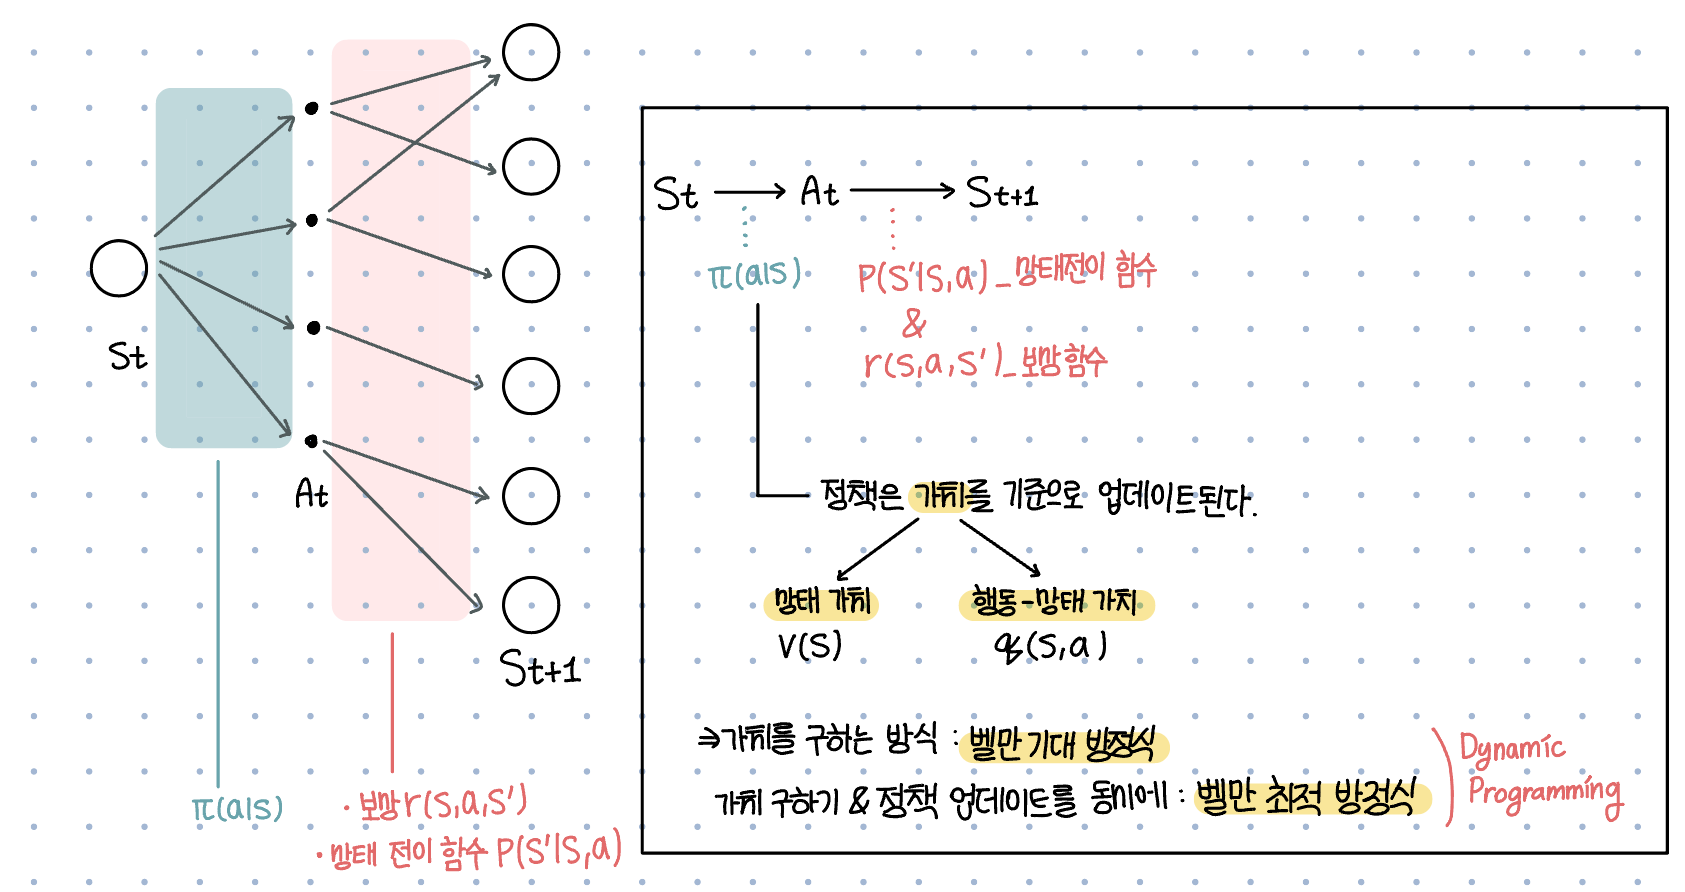 St
At
St+1
π(a|s)
· 보상 r(s,a,s')
· 상태 전이 함수 P(s'|s,a)
St → At → St+1
π(a|s)
P(s'|s,a) _ 상태전이 함수
&
r(s,a,s') _ 보상함수
정책은 가치를 기준으로 업데이트된다.
상태 가치
v(s)
행동-상태 가치
q(s,a)
⇒ 가치를 구하는 방식 : 벨만 기대 방정식
가치 구하기 & 정책 업데이트를 동시에 : 벨만 최적 방정식
Dynamic
Programming